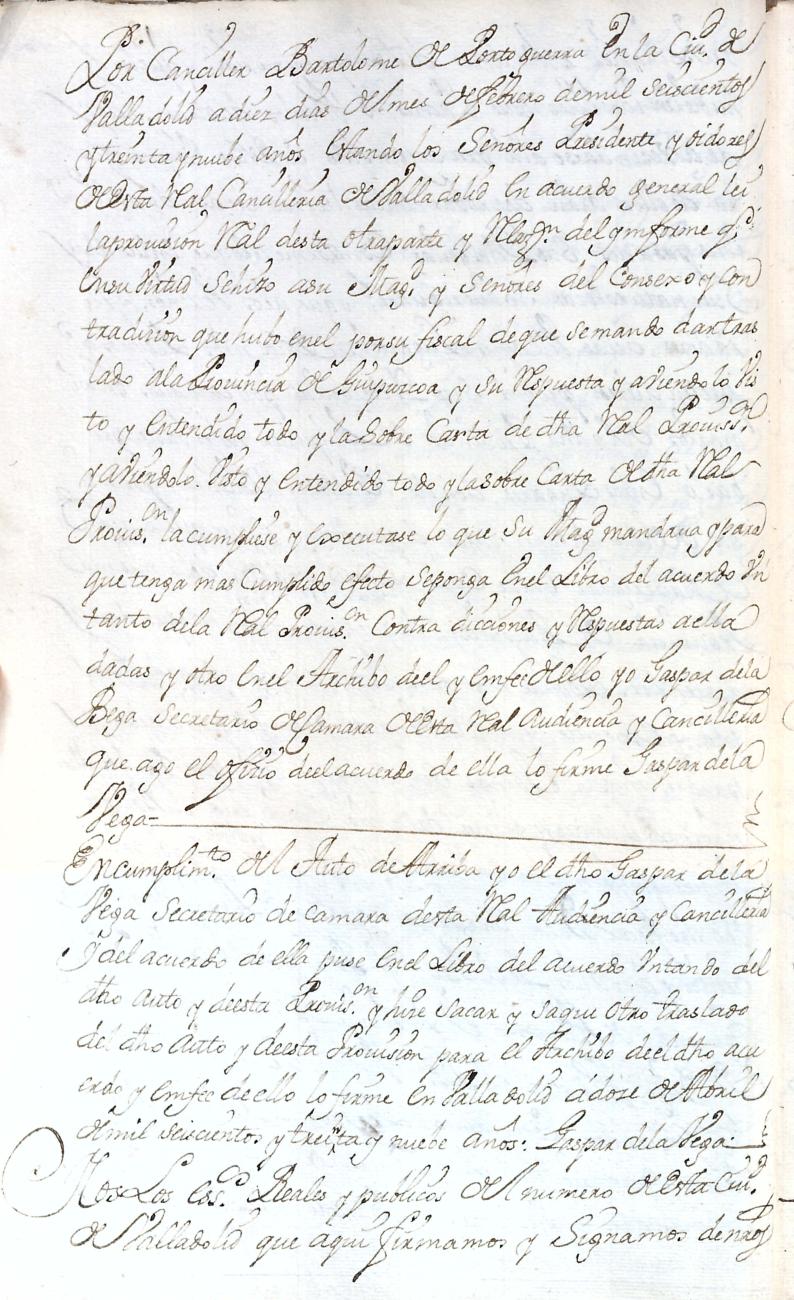 Por Canciller Bartolome de Porto guerra En la Ciu.d de
Valladolid a diez dias del mes de febrero de mil seiscientos
y treinta y nuebe años Estando los Señores Presidente y oidores
de esta Rl Cancilleria de Valladolid En acuerdo general lei
la provision Rl desta otra parte y Rlaz.n del ynforme q.e
En su Virtud se hizo a su Mag.d y Señores del Consexo y con
tradicion que hubo en el por su fiscal de que se mando dar tras
lado a la Provincia de Guipuzcoa y su Respuesta y aviendolo Vis
to y Entendido todo y la Sobre Carta de dha Rl Proviss.on
y aviendolo Visto y Entendido todo y la sobre Carta de dha Rl
Provis.on la cumpliese y executase lo que Su Mag.d mandava y para
que tenga mas Cumplido efecto se ponga En el Libro del acuerdo Un
tanto de la Rl Provis.on Contra dicciones y Respuestas a ella
dadas y otro En el Archibo de el y en fee de ello yo Gaspar de la
Bega Secretario de Camara de esta Rl Audiencia y Cancilleria
que ago el ofizio de el acuerdo de ella lo firme Gaspar de la
Vega=
En cumplim.to del Auto de Arriba yo el dho Gaspar de la
Vega Secretario de camara desta Rl Audiencia y Cancilleria
y del acuerdo de ella puse En el Libro del acuerdo Un tando del
dho Auto y de esta Provis.on y hize sacar y saque otro traslado
del dho Auto y de esta Provision para el Archibo de el dho acu
erdo y en fee de ello lo firme En Valladolid a doze de Abril
de mil seiscientos y treinta y nuebe años: Gaspar de la Vega:
Nos Los ess.os Reales y publicos del numero de esta Ciu.d
de Valladolid que aqui firmamos y Signamos de nros